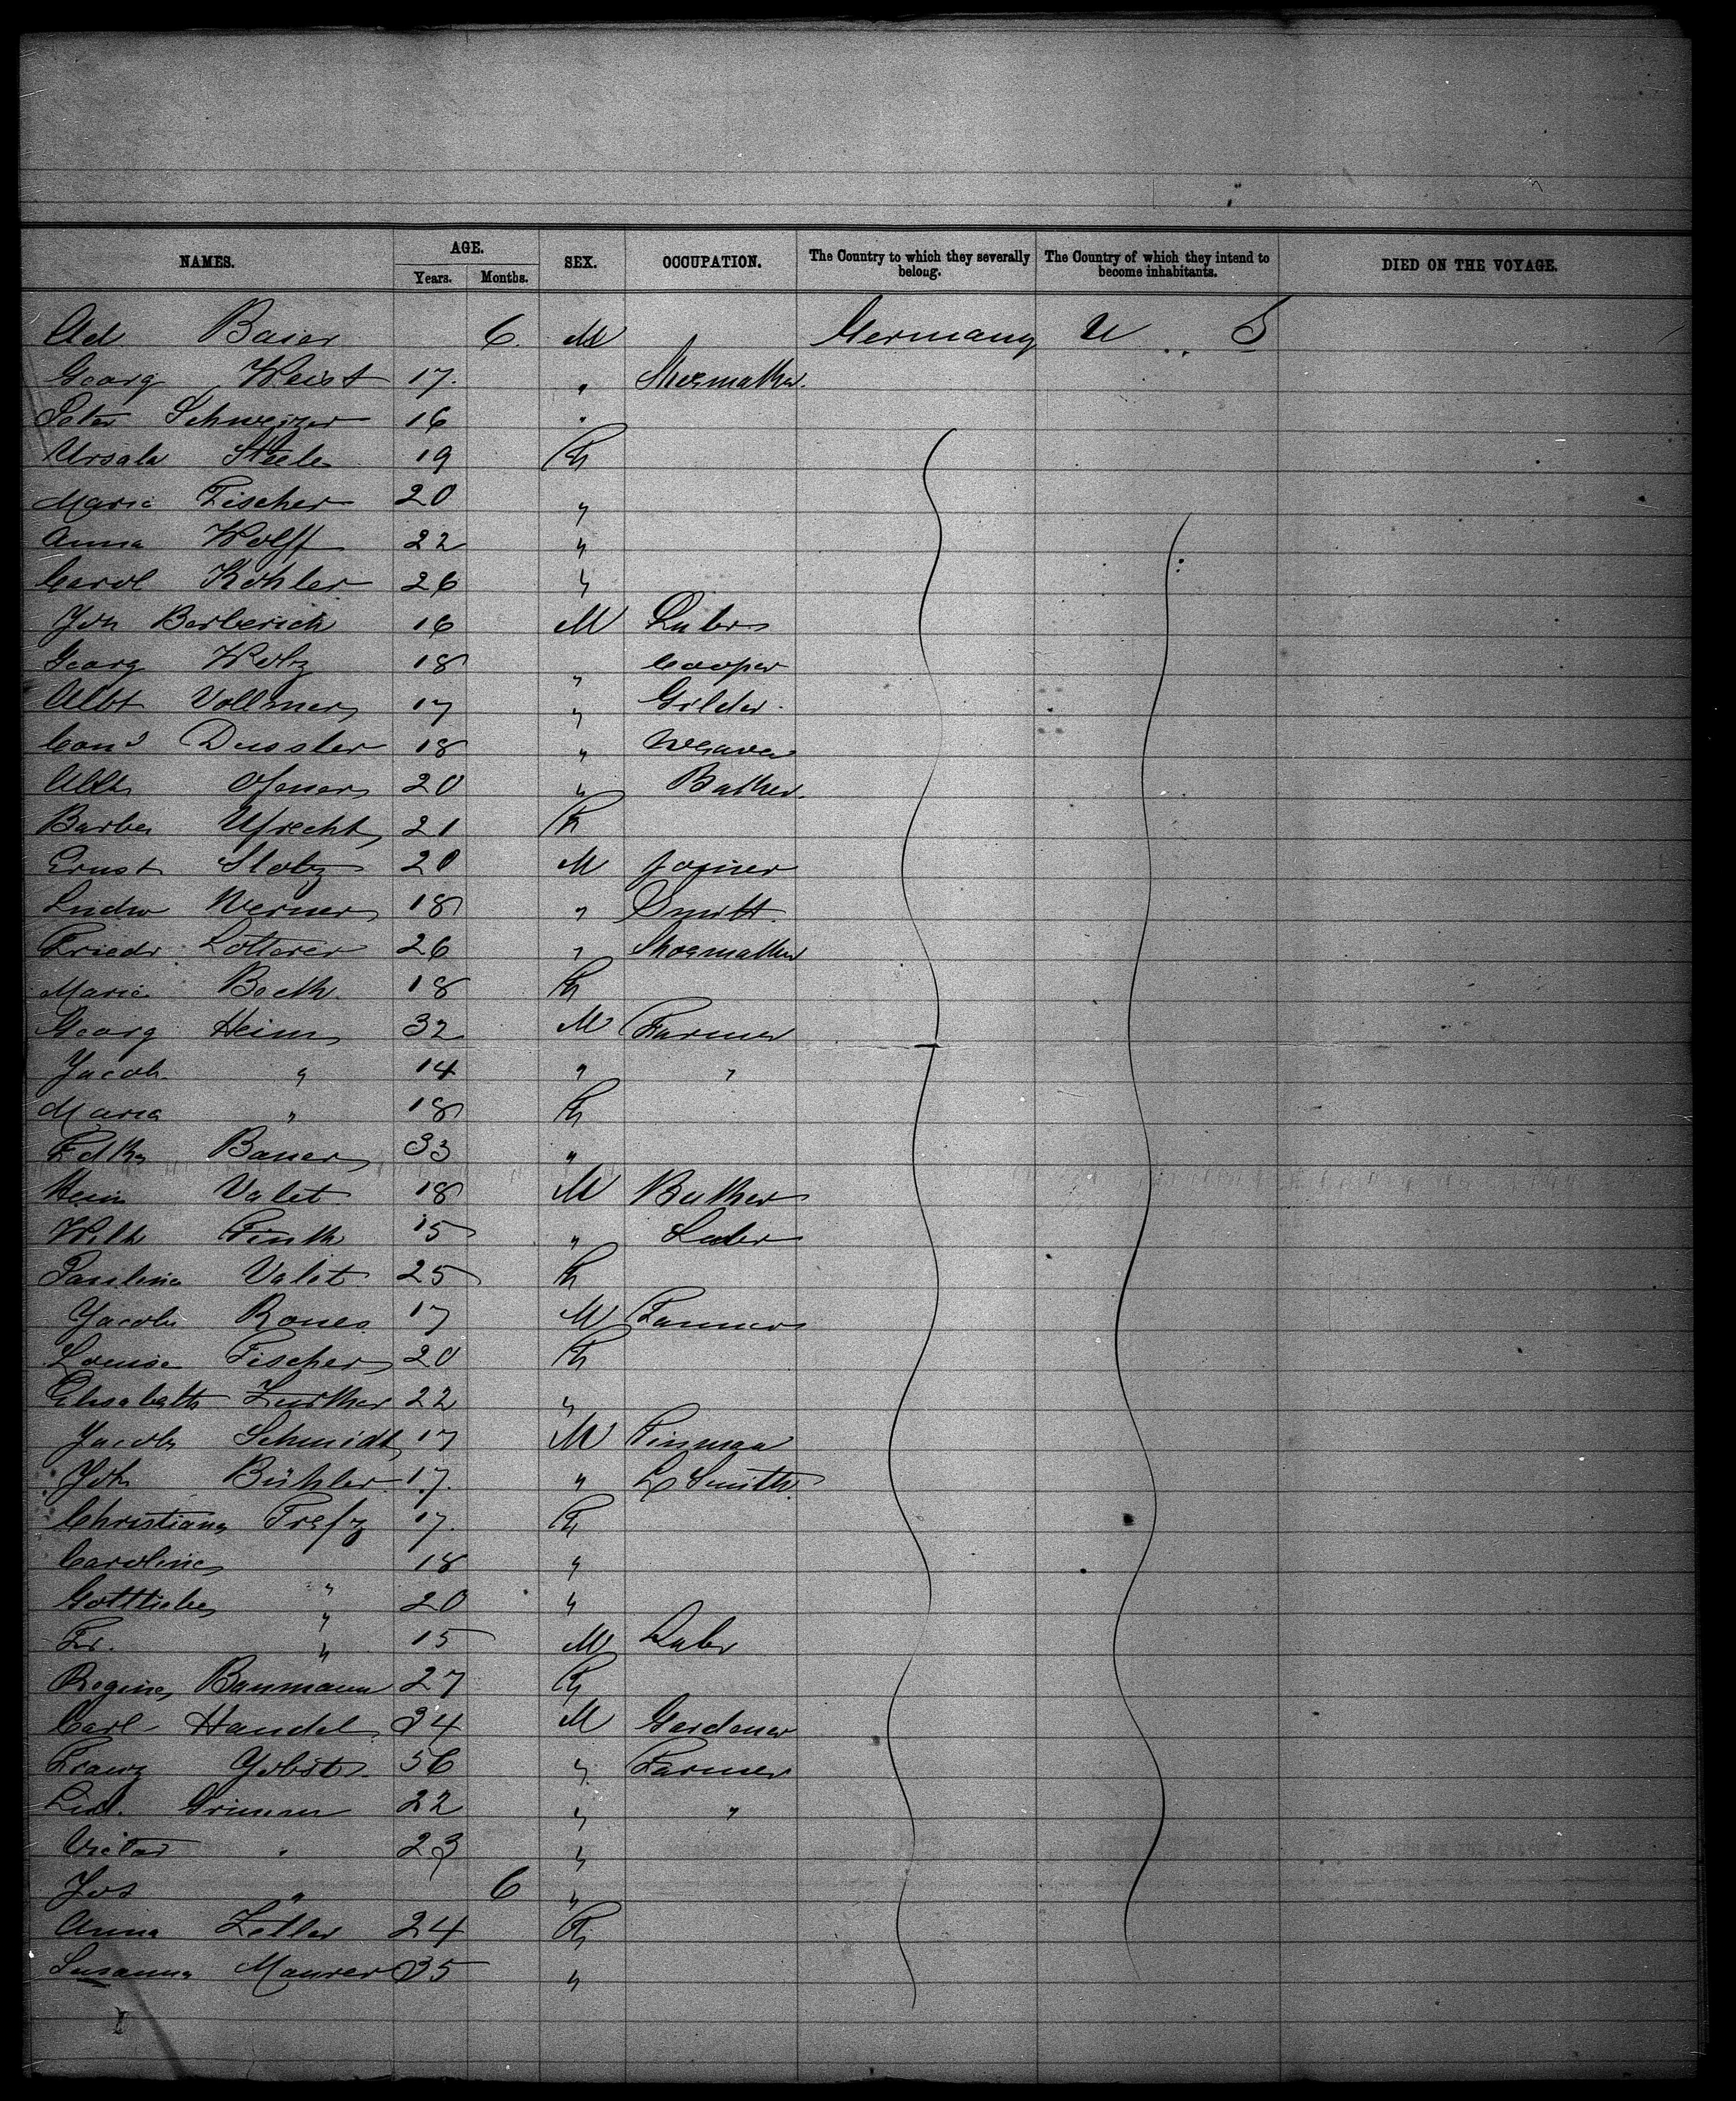 NAMES. AGE. SEX. OCCUPATION. The Country to which they severally belong. The Country of which they intend to become inhabitants. DIED ON THE VOYAGE.
Years. Months.
Ad Baier 6. M Germany U S
Georg Weist 17. " Shoemaker.
Peter Schweizer 16 "
Ursala Steele 19 F
Maria Fischer 20 "
Anna Wolff 22 "
Carol Kohler 26 "
Joh Berberich 16 M Labr
Georg 18 " Cooper
Albt Vollmer 17 " Gilder.
Cond Dussler 18 " Weaver
Albt Ofener 20 " Bather.
Barba Ufrecht 21 F
Ernst Stolz 20 M Joiner
Ludw Werner 18 " Smith.
Friedr. Lotterer 26 " Shoemaker
Marie Boeth. 18 F
Georg Heim 32 M Farmer
Jacob. " 14 " "
Maria " 18 F
Bauer 33 "
Hein Valet 18 M Buther
Wilh Finth 15 " Labr
Paulina Valet 25 F
Jacob 17 M Farmer
Louise Fischer 20 F
Elisabeth 22 "
Jacob Schmidt 17 M Tinman
Joh Bühler 17. " L Smith.
Christiana Trefz 17. F
Caroline " 18 "
Gottliebe " 20 "
Fr. " 15 M Labr
Regine Baumann 27 F
Carl Handel 34 M Gardener
Franz Jobst. 56 " Farmer
Grimm 22 " "
Victor " 23 "
Jos " 6 "
Anna Zeller 24 F
Susanna Maurer 35 "